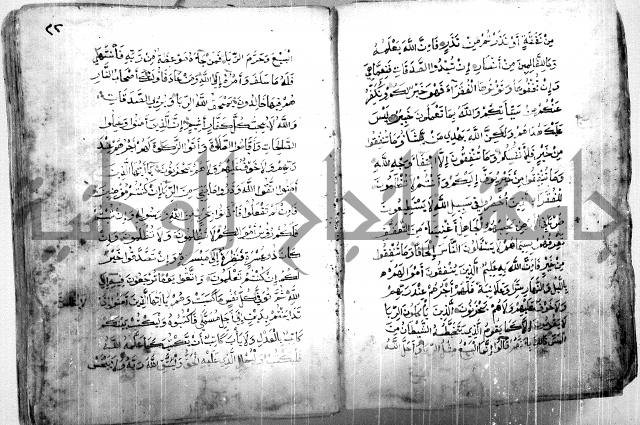 من نفقة أو نذرتم من نذر فإن الله يعلمه
وما للظالمين من أنصار إن تبدوا الصدقات فنعما هي
وإن تخفوها وتؤتوها الفقراء فهو خير لكم ويكفر
عنكم من سيئاتكم والله بما تعملون خبير ليس
عليك هداهم ولكن الله يهدي من يشاء وما تنفقوا
من خير فلأنفسكم وما تنفقون إلا ابتغاء وجه الله
وما تنفقوا من خير يوف إليكم وأنتم لا تظلمون
للفقراء الذين أحصروا في سبيل الله لا يستطيعون
ضربا في الأرض يحسبهم الجاهل أغنياء من التعفف
تعرفهم بسيماهم لا يسئلون الناس إلحافا وما تنفقوا
من خير فإن الله به عليم الذين ينفقون أموالهم
بالليل والنهار سرا وعلانية فلهم أجرهم عند ربهم
ولا خوف عليهم ولا هم يحزنون الذين يأكلون الربا
لا يقومون إلا كما يقوم الذي يتخبطه الشيطان من
المس ذلك بأنهم قالوا إنما البيع مثل الربا وأحل الله
٢٢
البيع وحرم الربا فمن جاءه موعظة من ربه فانتهى
فله ما سلف وأمره إلى الله ومن عاد فأولئك أصحاب النار
هم فيها خالدون يمحق الله الربا ويربي الصدقات
والله لا يحب كل كفار أثيم إن الذين آمنوا وعملوا
الصالحات وأقاموا الصلاة وآتوا الزكاة لهم أجرهم عند
ربهم ولا خوف عليهم ولا هم يحزنون يا أيها الذين
آمنوا اتقوا الله وذروا ما بقي من الربا إن كنتم مؤمنين
فإن لم تفعلوا فأذنوا بحرب من الله ورسوله وإن تبتم
فلكم رءوس أموالكم لا تظلمون ولا تظلمون وإن
كان ذو عسرة فنظرة إلى ميسرة وأن تصدقوا خير
لكم إن كنتم تعلمون واتقوا يوما ترجعون فيه إلى
الله ثم توفى كل نفس ما كسبت وهم لا يظلمون يا أيها الذين آمنوا إذا
تداينتم بدين إلى أجل مسمى فاكتبوه وليكتب بينكم
كاتب بالعدل ولا يأب كاتب أن يكتب كما علمه الله
فليكتب وليملل الذي عليه الحق وليتق الله ربه ولا يبخس
جامعة النجاح الوطنية